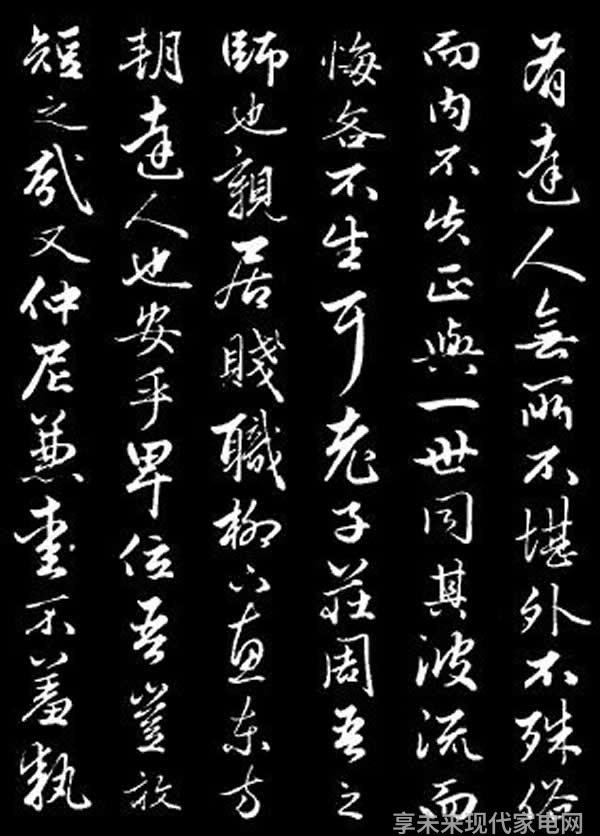 有達人無所不堪外不殊俗
而内不失正與一世同其波流而
悔吝不生耳老子莊周吾之
師也親居賤職柳下惠東方
朝達人也安乎卑位吾豈敢
短之哉又仲尼兼愛不羞執
享未来现代家电网